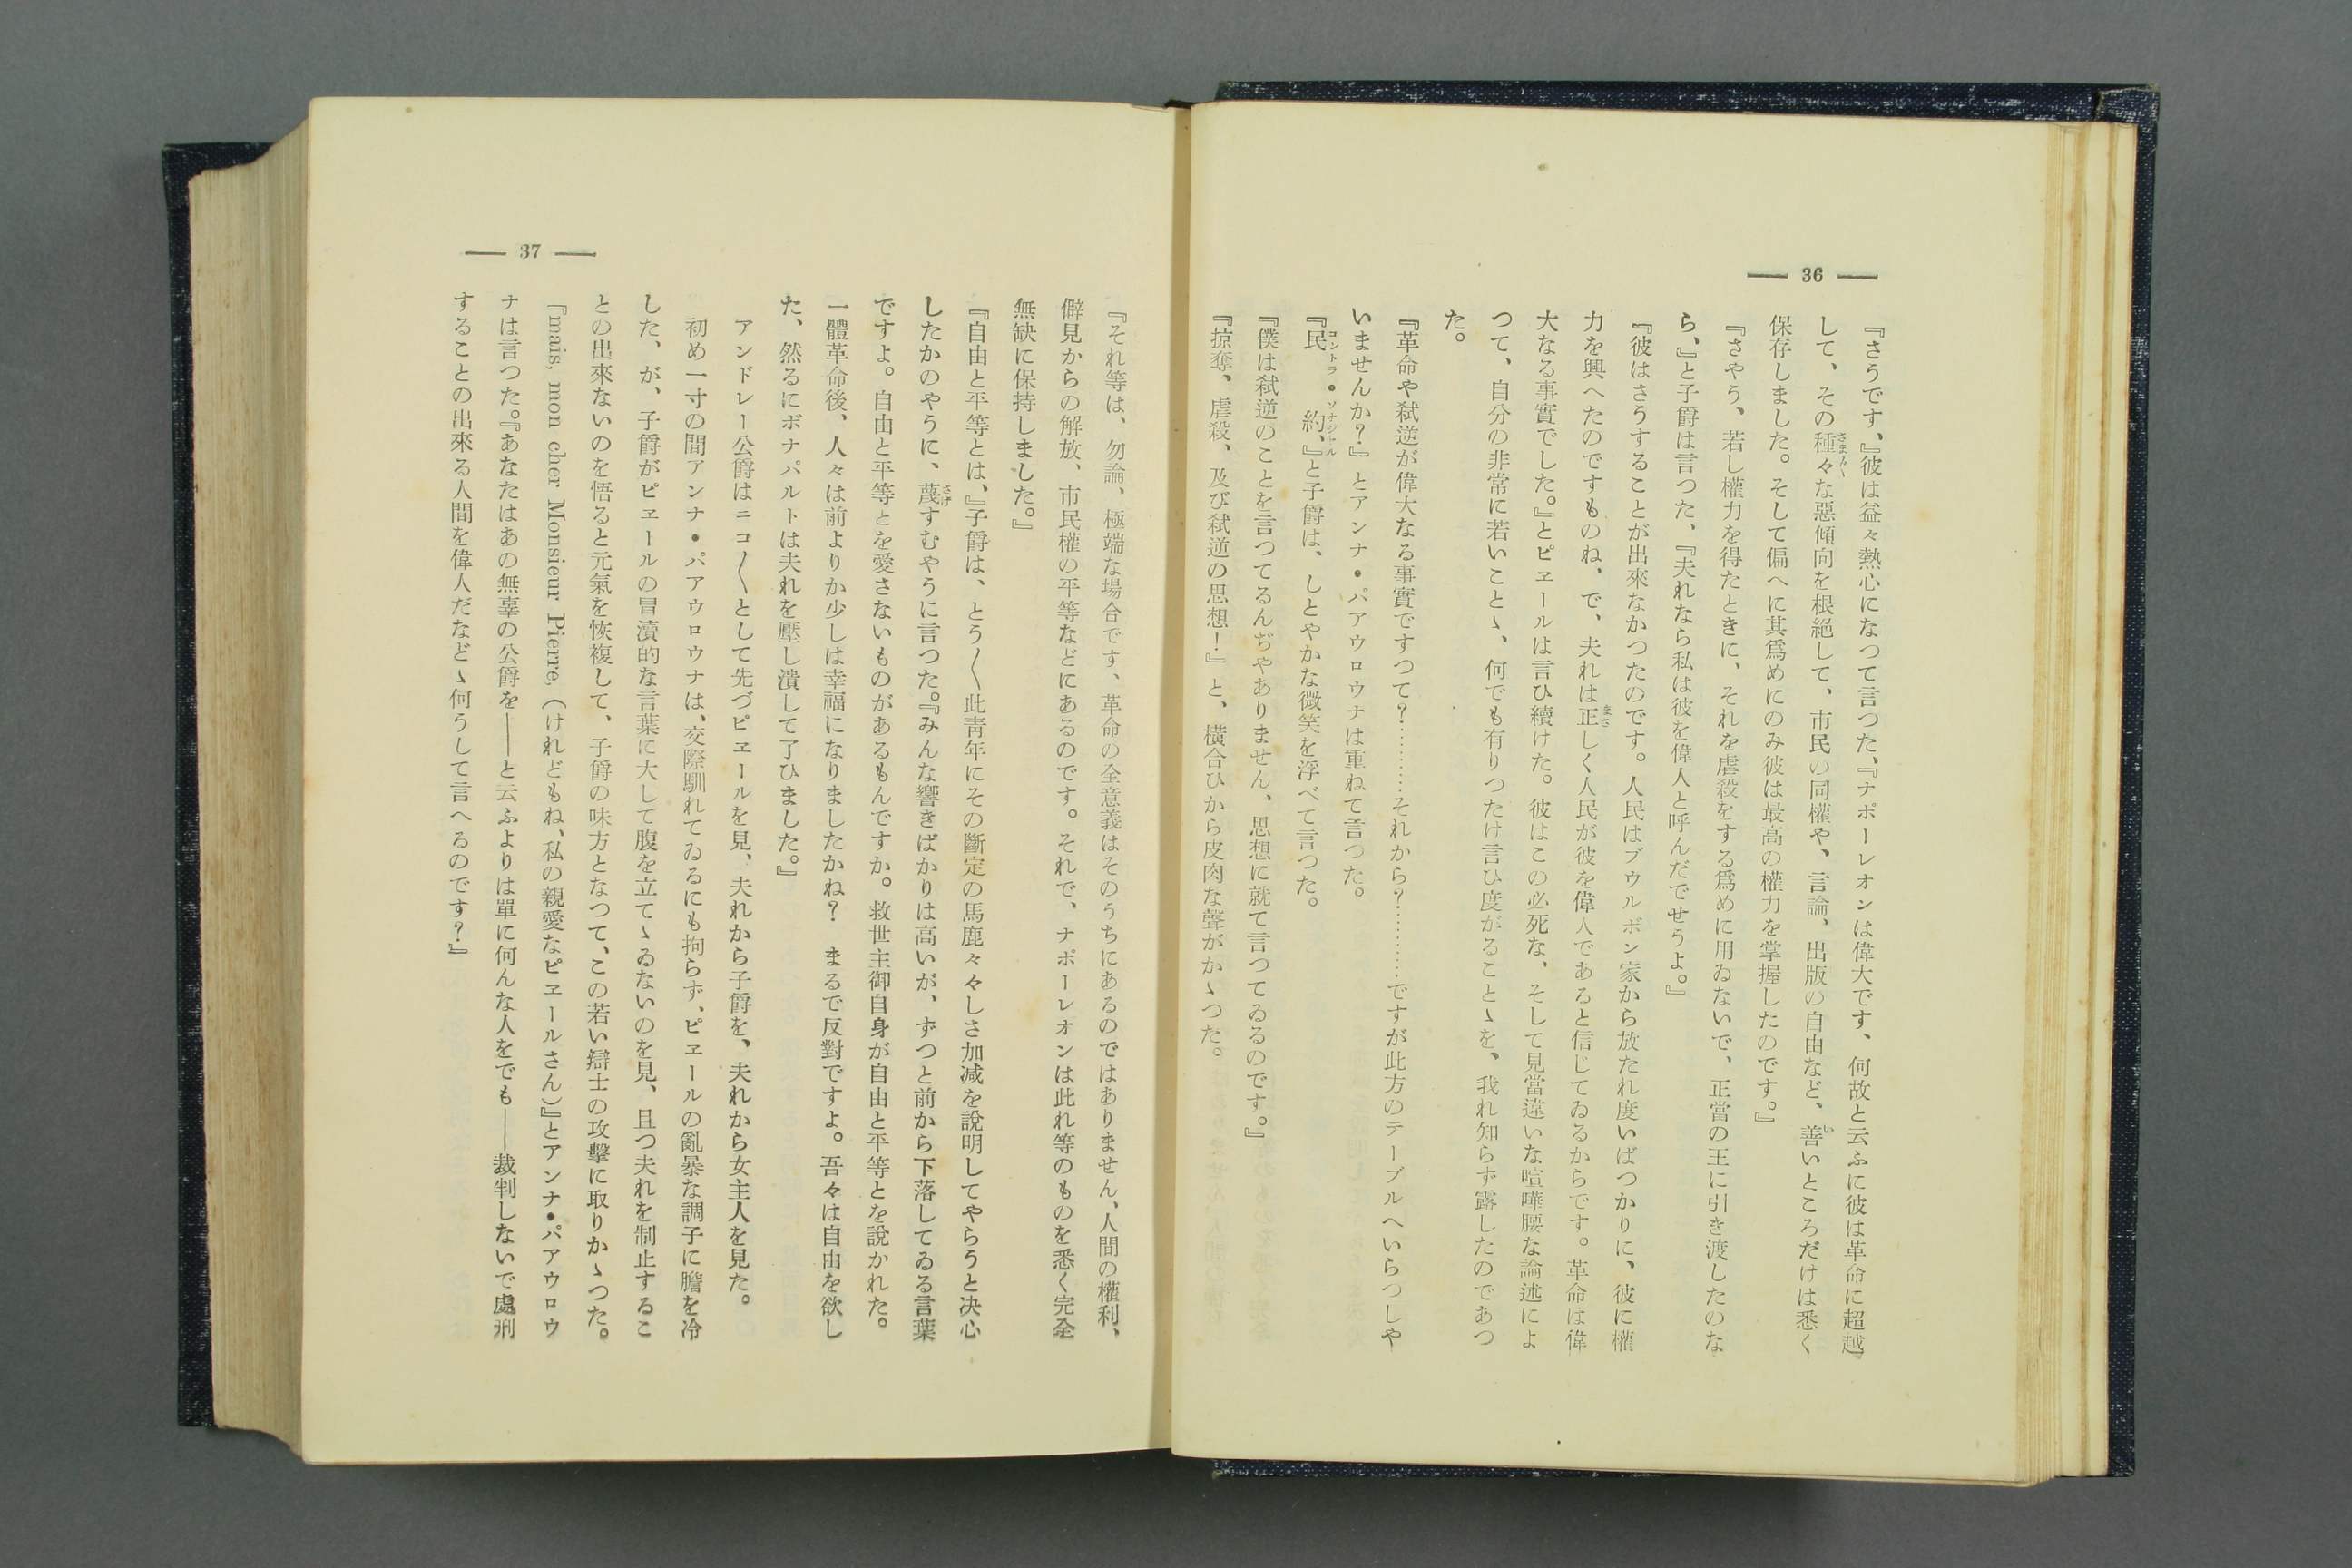 36
『さうです、』彼は益々熱心になつて言つた、『ナポーレオンは偉大です、何故と云ふに彼は革命に超越
して、その種々な惡傾向を根絶して、市民の同權や、言論、出版の自由など、善いところだけは悉く
保存しました。そして偏へに其爲めにのみ彼は最高の權力を掌握したのです。』
『さやう、若し權力を得たときに、それを虐殺をする爲めに用ゐないで、正當の王に引き渡したのな
ら、』と子爵は言つた、『夫れなら私は彼を偉人と呼んだでせうよ。』
『彼はさうすることが出來なかつたのです。人民はブウルボン家から放たれ度いばつかりに、彼に權
力を興へたのですものね、で、夫れは正しく人民が彼を偉人であると信じてゐるからです。革命は偉
大なる事實でした。』とピエールは言ひ續けた。彼はこの必死な、そして見當違いな喧嘩腰な論述によ
つて、自分の非常に若いことゝ、何でも有りつたけ言ひ度がることゝを、我れ知らず露したのであつ
た。
『革命や弑逆が偉大なる事實ですつて？………それから？………ですが此方のテーブルへいらつしや
いませんか？』とアンナ・パアウロウナは重ねて言つた。
『民・約、』と子爵は、しとやかな微笑を浮べて言つた。
『僕は弑逆のことを言つてるんぢやありません、思想に就て言つてゐるのです。』
『掠奪、虐殺、及び弑逆の思想！』と、横合ひから皮肉な聲がかゝつた。
37
『それ等は、勿論、極端な場合です、革命の全意義はそのうちにあるのではありません、人間の權利、
僻見からの解放、市民權の平等などにあるのです。それで、ナポーレオンは此れ等のものを悉く完全
無缺に保持しました。』
『自由と平等とは、』子爵は、とう〳〵此靑年にその斷定の馬鹿々々しさ加減を說明してやらうと決心
したかのやうに、蔑すむやうに言つた。『みんな響きばかりは高いが、ずつと前から下落してゐる言葉
ですよ。自由と平等とを愛さないものがあるもんですか。救世主御自身が自由と平等とを說かれた。
一體革命後、人々は前よりか少しは幸福になりましたかね？　まるで反對ですよ。吾々は自由を欲し
た、然るにボナパルトは夫れを壓し潰して了ひました。』
アンドレー公爵はニコ〳〵として先づピエールを見、夫れから子爵を、夫れから女主人を見た。
初め一寸の間アンナ・パアウロウナは、交際馴れてゐるにも拘らず、ピエールの亂暴な調子に膽を冷
した、が、子爵がピエールの冒瀆的な言葉に大して腹を立てゝゐないのを見、且つ夫れを制止するこ
との出來ないのを悟ると元氣を恢複して、子爵の味方となつて、この若い辯士の攻擊に取りかゝつた。
『mais, mon cher Monsieur Pierre, (けれどもね、私の親愛なピエールさん)』とアンナ・パアウロウ
ナは言つた。『あなたはあの無辜の公爵を――と云ふよりは單に何んな人をでも――裁判しないで處刑
することの出來る人間を偉人だなどゝ何うして言へるのです？』